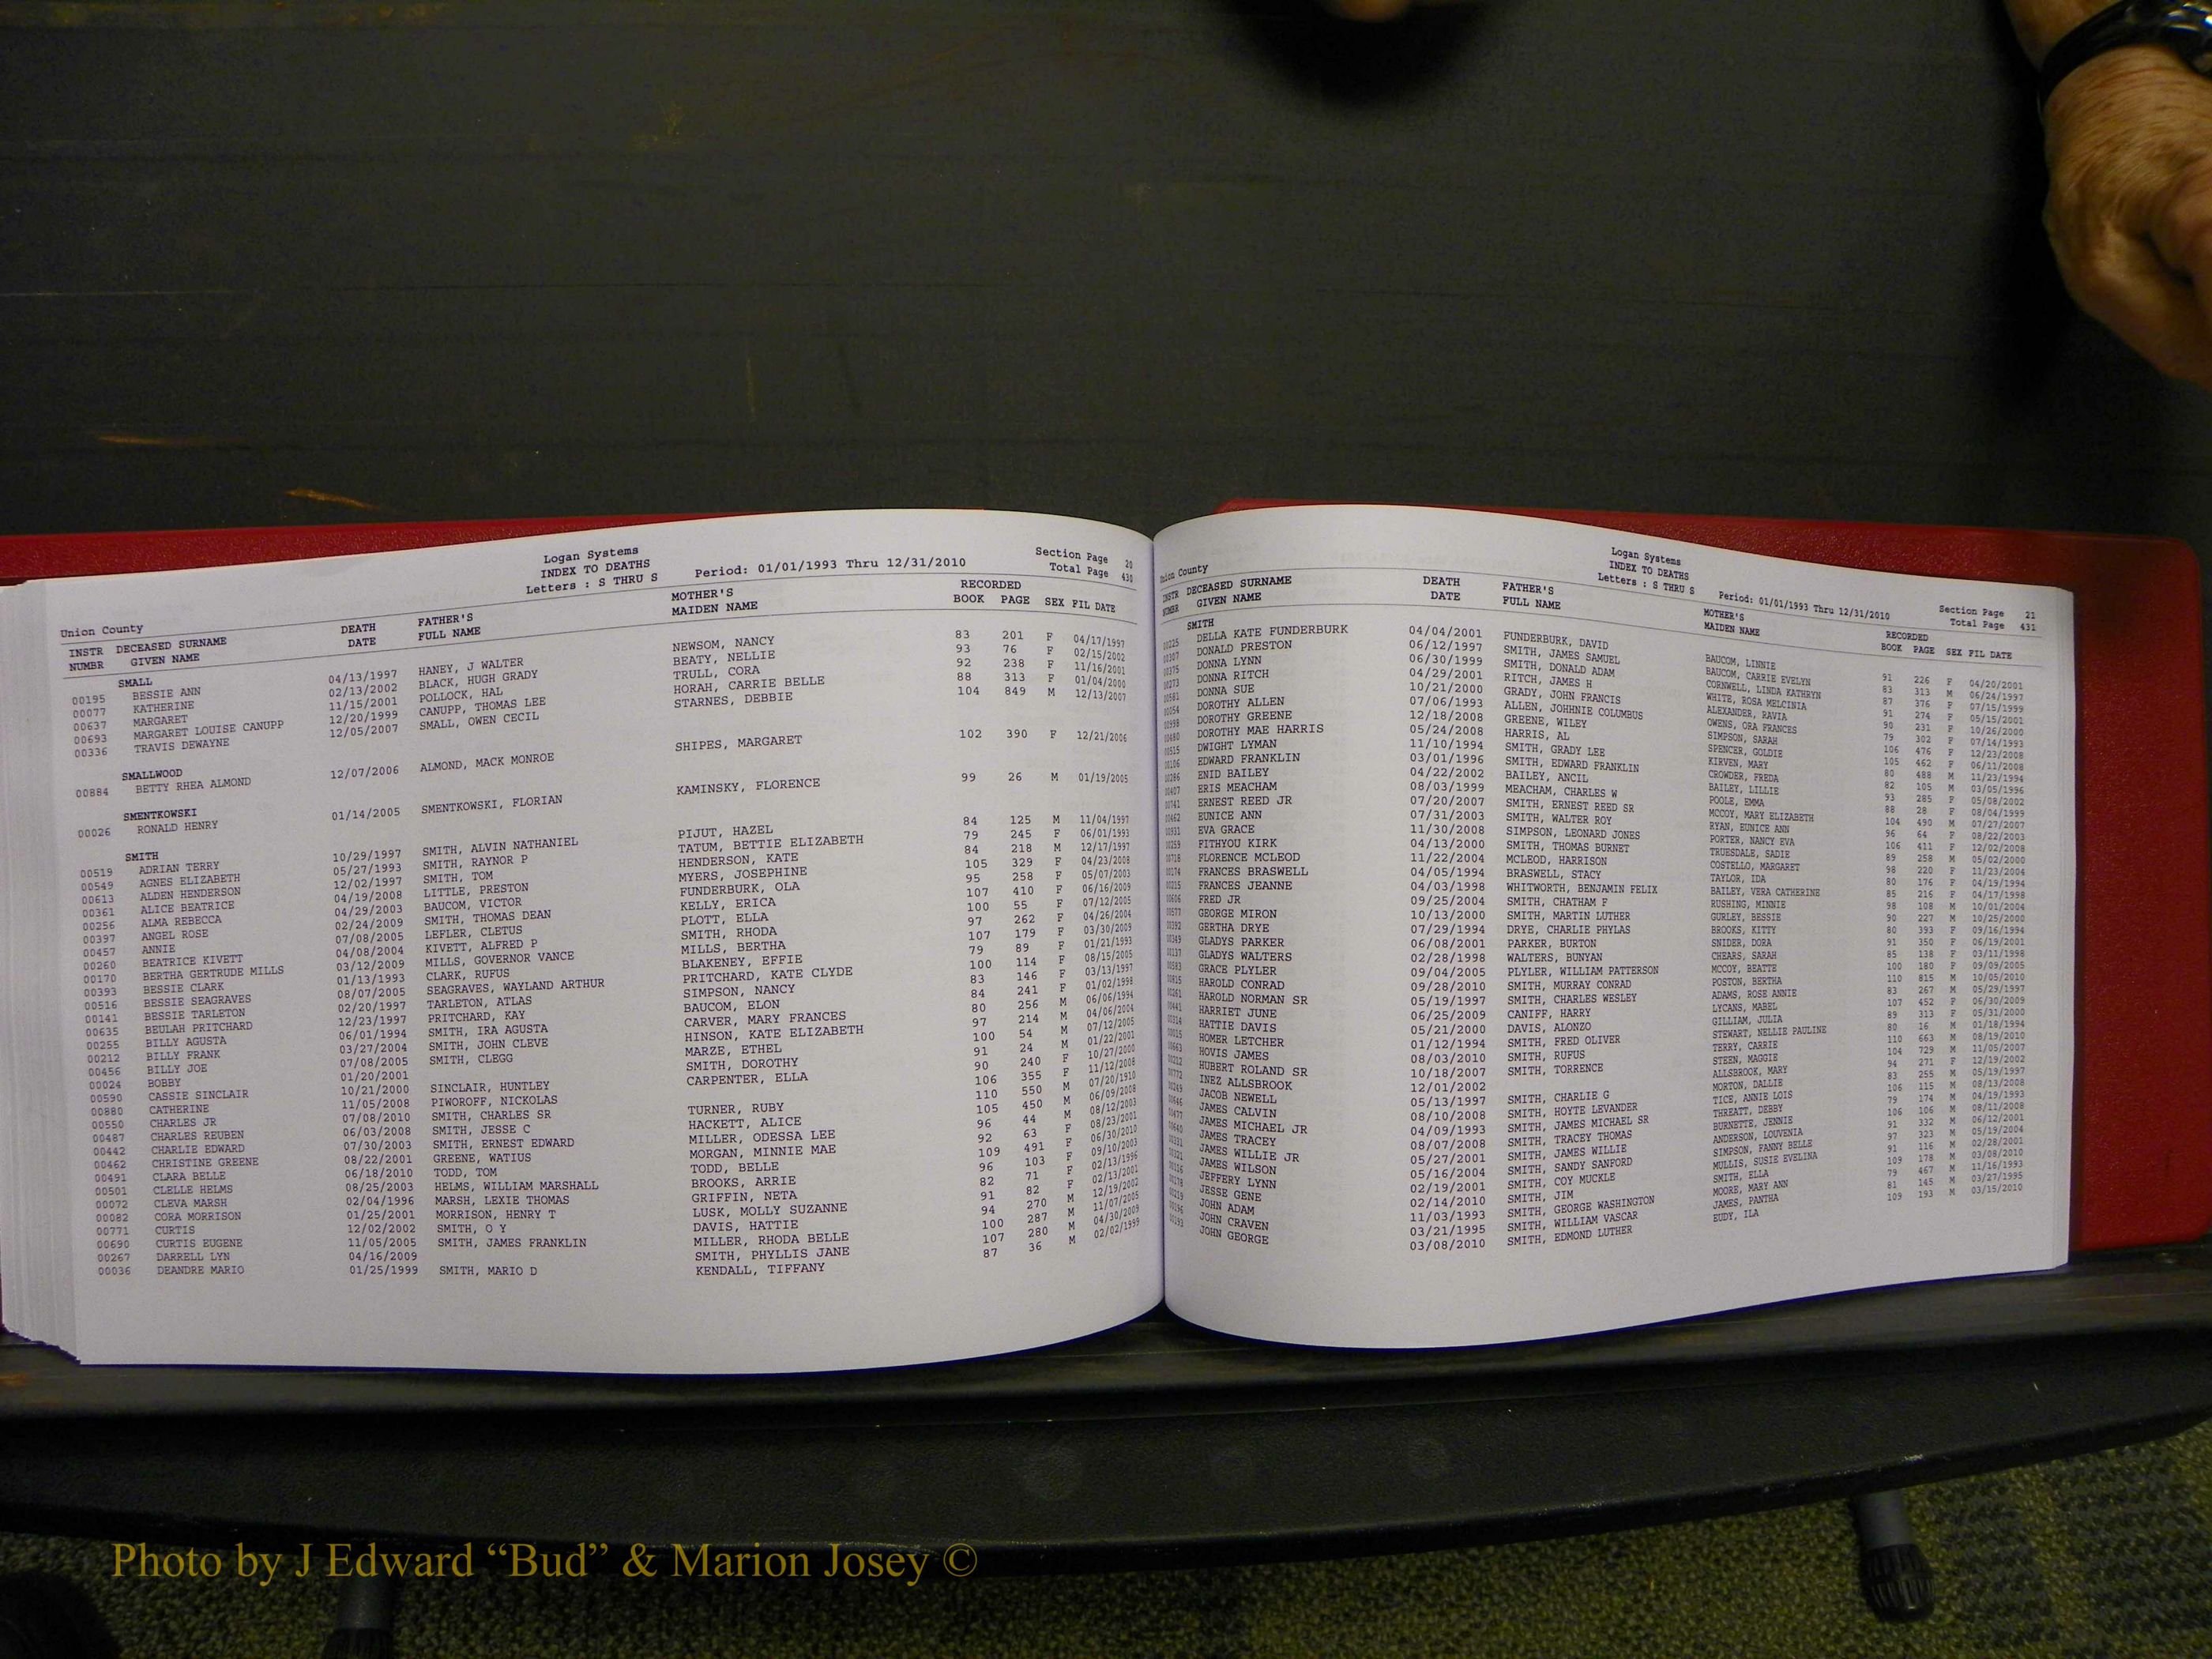 Logan Systems
INDEX TO DEATHS
Letters : S THRU S
Period: 01/01/1993 Thru 12/31/2010
Section Page 20
Total Page 430
Union County
INSTR DECEASED SURNAME DEATH FATHER'S MOTHER'S RECORDED
NUMBR GIVEN NAME DATE FULL NAME MAIDEN NAME BOOK PAGE SEX FIL DATE
SMALL
00195 BESSIE ANN 04/13/1997 HANEY, J WALTER NEWSOM, NANCY 83 201 F 04/17/1997
00077 KATHERINE 02/13/2002 BLACK, HUGH GRADY BEATY, NELLIE 93 76 F 02/15/2002
00637 MARGARET 11/15/2001 POLLOCK, HAL TRULL, CORA 92 238 F 11/16/2001
00693 MARGARET LOUISE CANUPP 12/20/1999 CANUPP, THOMAS LEE HORAH, CARRIE BELLE 88 313 F 01/04/2000
00336 TRAVIS DEWAYNE 12/05/2007 SMALL, OWEN CECIL STARNES, DEBBIE 104 849 M 12/13/2007
SMALLWOOD
00884 BETTY RHEA ALMOND 12/07/2006 ALMOND, MACK MONROE SHIPES, MARGARET 102 390 F 12/21/2006
SMENTKOWSKI
00026 RONALD HENRY 01/14/2005 SMENTKOWSKI, FLORIAN KAMINSKY, FLORENCE 99 26 M 01/19/2005
SMITH
00519 ADRIAN TERRY 10/29/1997 SMITH, ALVIN NATHANIEL PIJUT, HAZEL 84 125 M 11/04/1997
00549 AGNES ELIZABETH 05/27/1993 SMITH, RAYNOR P TATUM, BETTIE ELIZABETH 79 245 F 06/01/1993
00613 ALDEN HENDERSON 12/02/1997 SMITH, TOM HENDERSON, KATE 84 218 M 12/17/1997
00361 ALICE BEATRICE 04/19/2008 LITTLE, PRESTON MYERS, JOSEPHINE 105 329 F 04/23/2008
00256 ALMA REBECCA 04/29/2003 BAUCOM, VICTOR FUNDERBURK, OLA 95 258 F 05/07/2003
00397 ANGEL ROSE 02/24/2009 SMITH, THOMAS DEAN KELLY, ERICA 107 410 F 06/16/2009
00457 ANNIE 07/08/2005 LEFLER, CLETUS PLOTT, ELLA 100 55 F 07/12/2005
00260 BEATRICE KIVETT 04/08/2004 KIVETT, ALFRED P SMITH, RHODA 97 262 F 04/26/2004
00170 BERTHA GERTRUDE MILLS 03/12/2009 MILLS, GOVERNOR VANCE MILLS, BERTHA 107 179 F 03/30/2009
00393 BESSIE CLARK 01/13/1993 CLARK, RUFUS BLAKENEY, EFFIE 79 89 F 01/21/1993
00516 BESSIE SEAGRAVES 08/07/2005 SEAGRAVES, WAYLAND ARTHUR PRITCHARD, KATE CLYDE 100 114 F 08/15/2005
00141 BESSIE TARLETON 02/20/1997 TARLETON, ATLAS SIMPSON, NANCY 83 146 F 03/13/1997
00635 BEULAH PRITCHARD 12/23/1997 PRITCHARD, KAY BAUCOM, ELON 84 241 F 01/02/1998
00255 BILLY AGUSTA 06/01/1994 SMITH, IRA AGUSTA CARVER, MARY FRANCES 80 256 M 06/06/1994
00212 BILLY FRANK 03/27/2004 SMITH, JOHN CLEVE HINSON, KATE ELIZABETH 97 214 M 04/06/2004
00456 BILLY JOE 07/08/2005 SMITH, CLEGG MARZE, ETHEL 100 54 M 07/12/2005
00024 BOBBY 01/20/2001 SMITH, DOROTHY 91 24 M 01/22/2001
00590 CASSIE SINCLAIR 10/21/2000 SINCLAIR, HUNTLEY CARPENTER, ELLA 90 240 F 10/27/2000
00880 CATHERINE 11/05/2008 PIWOROFF, NICKOLAS 106 355 F 11/12/2008
00550 CHARLES JR 07/08/2010 SMITH, CHARLES SR TURNER, RUBY 110 550 M 07/20/1910
00487 CHARLES REUBEN 06/03/2008 SMITH, JESSE C HACKETT, ALICE 105 450 M 06/09/2008
00442 CHARLIE EDWARD 07/30/2003 SMITH, ERNEST EDWARD MILLER, ODESSA LEE 96 44 M 08/12/2003
00462 CHRISTINE GREENE 08/22/2001 GREENE, WATIUS MORGAN, MINNIE MAE 92 63 F 08/23/2001
00491 CLARA BELLE 06/18/2010 TODD, TOM TODD, BELLE 109 491 F 06/30/2010
00501 CLELLE HELMS 08/25/2003 HELMS, WILLIAM MARSHALL BROOKS, ARRIE 96 103 F 09/10/2003
00072 CLEVA MARSH 02/04/1996 MARSH, LEXIE THOMAS GRIFFIN, NETA 82 71 F 02/13/1996
00082 CORA MORRISON 01/25/2001 MORRISON, HENRY T LUSK, MOLLY SUZANNE 91 82 F 02/13/2001
00771 CURTIS 12/02/2002 SMITH, O Y DAVIS, HATTIE 94 270 M 12/19/2002
00690 CURTIS EUGENE 11/05/2005 SMITH, JAMES FRANKLIN MILLER, RHODA BELLE 100 287 M 11/07/2005
00267 DARRELL LYN 04/16/2009 SMITH, PHYLLIS JANE 107 280 M 04/30/2009
00036 DEANDRE MARIO 01/25/1999 SMITH, MARIO D KENDALL, TIFFANY 87 36 M 02/02/1999
Logan Systems
INDEX TO DEATHS
Letters : S THRU S
Period: 01/01/1993 Thru 12/31/2010
Section Page 21
Total Page 431
Union County
INSTR DECEASED SURNAME DEATH FATHER'S MOTHER'S RECORDED
NUMBR GIVEN NAME DATE FULL NAME MAIDEN NAME BOOK PAGE SEX FIL DATE
SMITH
DELLA KATE FUNDERBURK 04/04/2001 FUNDERBURK, DAVID BAUCOM, LINNIE 91 226 F 04/20/2001
DONALD PRESTON 06/12/1997 SMITH, JAMES SAMUEL BAUCOM, CARRIE EVELYN 83 313 M 06/24/1997
DONNA LYNN 06/30/1999 SMITH, DONALD ADAM CORNWELL, LINDA KATHRYN 87 376 F 07/15/1999
DONNA RITCH 04/29/2001 RITCH, JAMES H WHITE, ROSA MELCINIA 91 274 F 05/15/2001
DONNA SUE 10/21/2000 GRADY, JOHN FRANCIS ALEXANDER, RAVIA 90 231 F 10/26/2000
DOROTHY ALLEN 07/06/1993 ALLEN, JOHNNIE COLUMBUS OWENS, ORA FRANCES 79 302 F 07/14/1993
DOROTHY GREENE 12/18/2008 GREENE, WILEY SIMPSON, SARAH 106 476 F 12/23/2008
DOROTHY MAE HARRIS 05/24/2008 HARRIS, AL SPENCER, GOLDIE 105 462 F 06/11/2008
DWIGHT LYMAN 11/10/1994 SMITH, GRADY LEE KIRVEN, MARY 80 488 M 11/23/1994
EDWARD FRANKLIN 03/01/1996 SMITH, EDWARD FRANKLIN CROWDER, FREDA 82 105 M 03/05/1996
ENID BAILEY 04/22/2002 BAILEY, ANCIL BAILEY, LILLIE 93 285 F 05/08/2002
ERIS MEACHAM 08/03/1999 MEACHAM, CHARLES W POOLE, EMMA 88 28 F 08/04/1999
ERNEST REED JR 07/20/2007 SMITH, ERNEST REED SR MCCOY, MARY ELIZABETH 104 490 M 07/27/2007
EUNICE ANN 07/31/2003 SMITH, WALTER ROY RYAN, EUNICE ANN 96 64 F 08/22/2003
EVA GRACE 11/30/2008 SIMPSON, LEONARD JONES PORTER, NANCY EVA 106 411 F 12/02/2008
FITHYOU KIRK 04/13/2000 SMITH, THOMAS BURNET TRUESDALE, SADIE 89 258 M 05/02/2000
FLORENCE MCLEOD 11/22/2004 MCLEOD, HARRISON COSTELLO, MARGARET 98 220 F 11/23/2004
FRANCES BRASWELL 04/05/1994 BRASWELL, STACY TAYLOR, IDA 80 176 F 04/19/1994
FRANCES JEANNE 04/03/1998 WHITWORTH, BENJAMIN FELIX BAILEY, VERA CATHERINE 85 216 F 04/17/1998
FRED JR 09/25/2004 SMITH, CHATHAM F RUSHING, MINNIE 98 108 M 10/01/2004
GEORGE MIRON 10/13/2000 SMITH, MARTIN LUTHER GURLEY, BESSIE 90 227 M 10/25/2000
GERTHA DRYE 07/29/1994 DRYE, CHARLIE PHYLAS BROOKS, KITTY 80 393 F 09/16/1994
GLADYS PARKER 06/08/2001 PARKER, BURTON SNIDER, DORA 91 350 F 06/19/2001
GLADYS WALTERS 02/28/1998 WALTERS, BUNYAN CHEARS, SARAH 85 138 F 03/11/1998
GRACE PLYLER 09/04/2005 PLYLER, WILLIAM PATTERSON MCCOY, BEATTE 100 180 F 09/09/2005
HAROLD CONRAD 09/28/2010 SMITH, MURRAY CONRAD POSTON, BERTHA 110 815 M 10/05/2010
HAROLD NORMAN SR 05/19/1997 SMITH, CHARLES WESLEY ADAMS, ROSE ANNIE 83 267 M 05/29/1997
HARRIET JUNE 06/25/2009 CANIFF, HARRY LYCANS, MABEL 107 452 F 06/30/2009
HATTIE DAVIS 05/21/2000 DAVIS, ALONZO GILLIAM, JULIA 89 313 F 05/31/2000
HOMER LETCHER 01/12/1994 SMITH, FRED OLIVER STEWART, NELLIE PAULINE 80 16 M 01/18/1994
HOVIS JAMES 08/03/2010 SMITH, RUFUS TERRY, CARRIE 110 663 M 08/19/2010
HUBERT ROLAND SR 10/18/2007 SMITH, TORRENCE STEEN, MAGGIE 104 729 M 11/05/2007
INEZ ALLSBROOK 12/01/2002 ALLSBROOK, MARY 94 271 F 12/19/2002
JACOB NEWELL 05/13/1997 SMITH, CHARLIE G MORTON, DALLIE 83 255 M 05/19/1997
JAMES CALVIN 08/10/2008 SMITH, HOYTE LEVANDER TICE, ANNIE LOIS 106 115 M 08/13/2008
JAMES MICHAEL JR 04/09/1993 SMITH, JAMES MICHAEL SR THREATT, DEBBY 79 174 M 04/19/1993
JAMES TRACEY 08/07/2008 SMITH, TRACEY THOMAS BURNETTE, JENNIE 106 106 M 08/11/2008
JAMES WILLIE JR 05/27/2001 SMITH, JAMES WILLIE ANDERSON, LOUVENIA 91 332 M 06/12/2001
JAMES WILSON 05/16/2004 SMITH, SANDY SANFORD SIMPSON, FANNY BELLE 97 323 M 05/19/2004
JEFFERY LYNN 02/19/2001 SMITH, COY MUCKLE MULLIS, SUSIE EVELINA 91 116 M 02/28/2001
JESSE GENE 02/14/2010 SMITH, JIM SMITH, ELLA 109 178 M 03/08/2010
JOHN ADAM 11/03/1993 SMITH, GEORGE WASHINGTON MOORE, MARY ANN 79 467 M 11/16/1993
JOHN CRAVEN 03/21/1995 SMITH, WILLIAM VASCAR JAMES, PANTHA 81 145 M 03/27/1995
JOHN GEORGE 03/08/2010 SMITH, EDMOND LUTHER EUDY, ILA 109 193 M 03/15/2010
Photo by J Edward “Bud” & Marion Josey ©